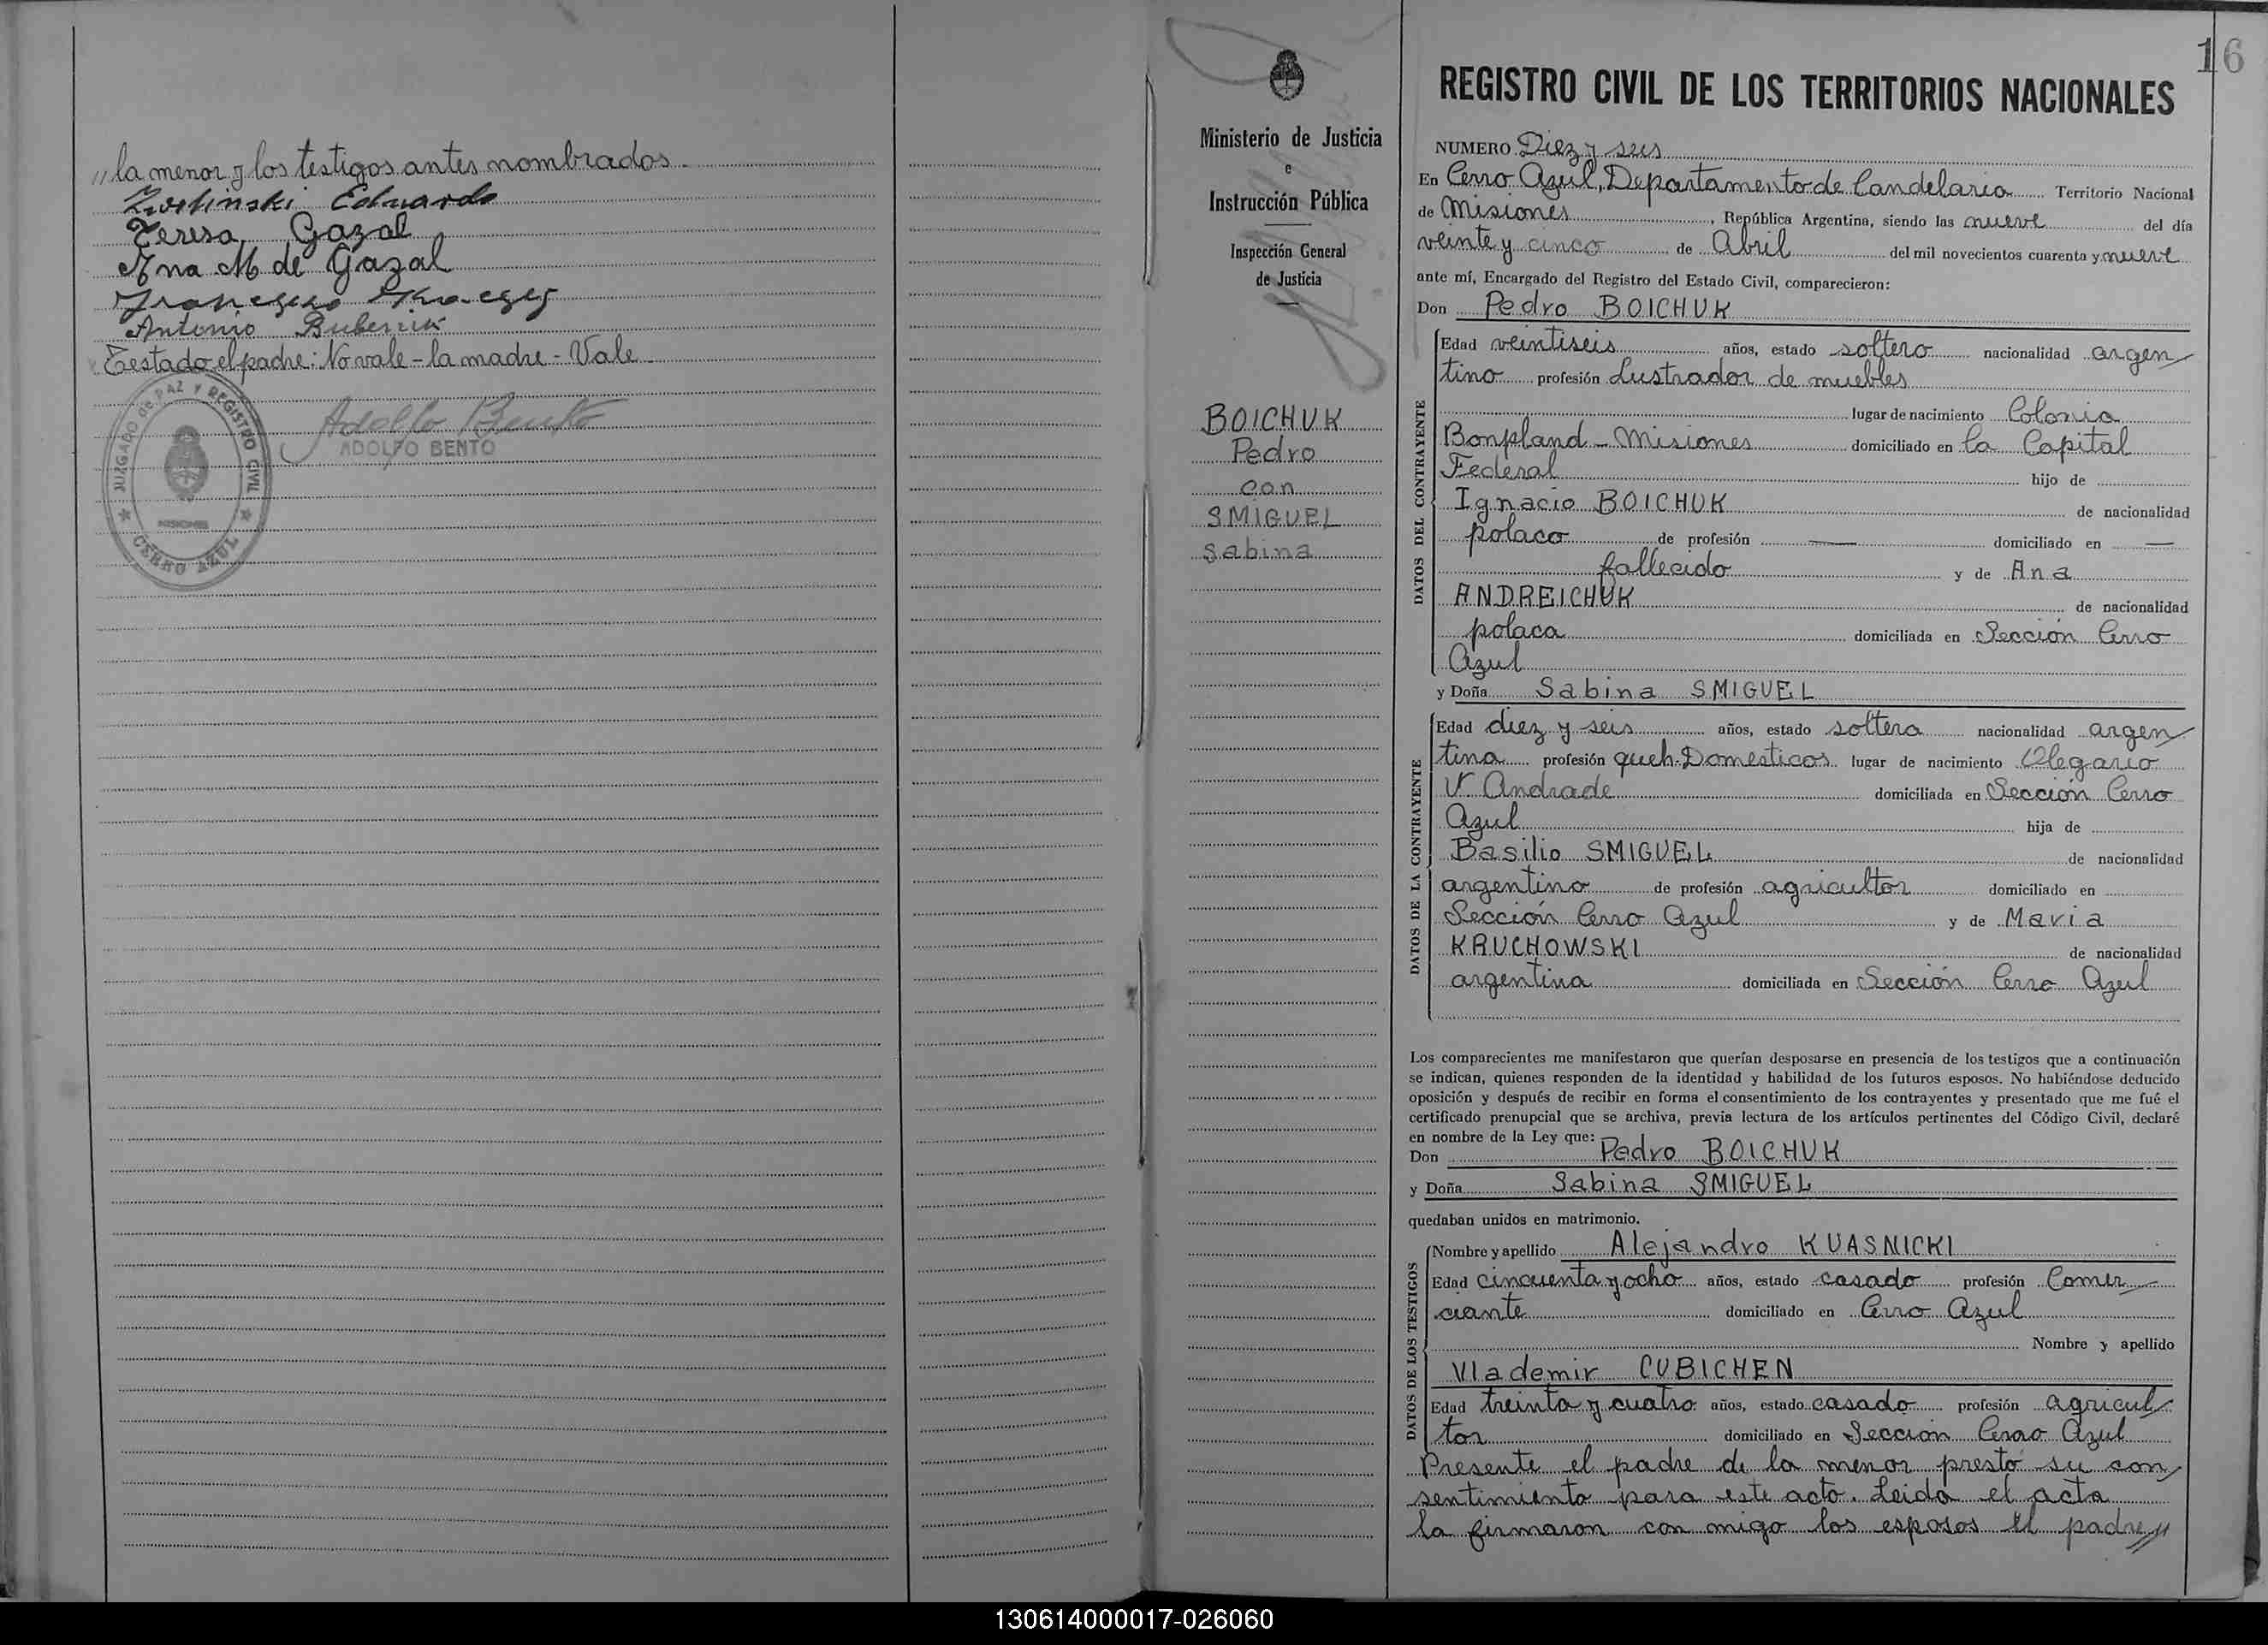 „la menor y los testigos antes nombrados.
Eduardo
Teresa Gazal
Ana M de Gazal
Antonio
Testado el padre: No vale - la madre - Vale
JUZGADO DE PAZ Y REGISTRO CIVIL
MISIONES
CERRO AZUL
Adolfo Bento
ADOLFO BENTO
Ministerio de Justicia
e
Instrucción Pública
Inspección General
de Justicia
BOICHUK
Pedro
con
SMIGUEL
Sabina
16
REGISTRO CIVIL DE LOS TERRITORIOS NACIONALES
NUMERO Diez y seis
En Cerro Azul, Departamento de Candelaria Territorio Nacional
de Misiones, República Argentina, siendo las nueve del día
veinte y cinco de Abril del mil novecientos cuarenta y nueve
ante mí, Encargado del Registro del Estado Civil, comparecieron:
Don Pedro BOICHUK
DATOS DEL CONTRAYENTE
Edad veintiseis años, estado soltero nacionalidad argen
tino profesión Lustrador de muebles
lugar de nacimiento Colonia
Bonpland - Misiones domiciliado en la Capital
Federal hijo de
Ignacio BOICHUK de nacionalidad
polaco de profesión — domiciliado en —
fallecido y de Ana
ANDREICHUK de nacionalidad
polaca domiciliada en Sección Cerro
Azul
y Doña Sabina SMIGUEL
DATOS DE LA CONTRAYENTE
Edad diez y seis años, estado soltera nacionalidad argen
tina profesión queh. Domesticos lugar de nacimiento Olegario
V. Andrade domiciliada en Sección Cerro
Azul hija de
Basilio SMIGUEL de nacionalidad
argentino de profesión agricultor domiciliado en
Sección Cerro Azul y de Maria
KRUCHOWSKI de nacionalidad
argentina domiciliada en Sección Cerro Azul
Los comparecientes me manifestaron que querían desposarse en presencia de los testigos que a continuación
se indican, quienes responden de la identidad y habilidad de los futuros esposos. No habiéndose deducido
oposición y después de recibir en forma el consentimiento de los contrayentes y presentado que me fué el
certificado prenupcial que se archiva, previa lectura de los artículos pertinentes del Código Civil, declaré
en nombre de la Ley que:
Don Pedro BOICHUK
y Doña Sabina SMIGUEL
quedaban unidos en matrimonio.
DATOS DE LOS TESTIGOS
Nombre y apellido Alejandro KUASNICKI
Edad cincuenta y ocho años, estado casado profesión Comer
ciante domiciliado en Cerro Azul
Nombre y apellido
Vlademir CUBICHEN
Edad treinta y cuatro años, estado casado profesión agricul
tor domiciliado en Sección Cerro Azul
Presente el padre de la menor prestó su con
sentimiento para este acto. Leida el acta
la firmaron con migo los esposos el padre„
130614000017-026060